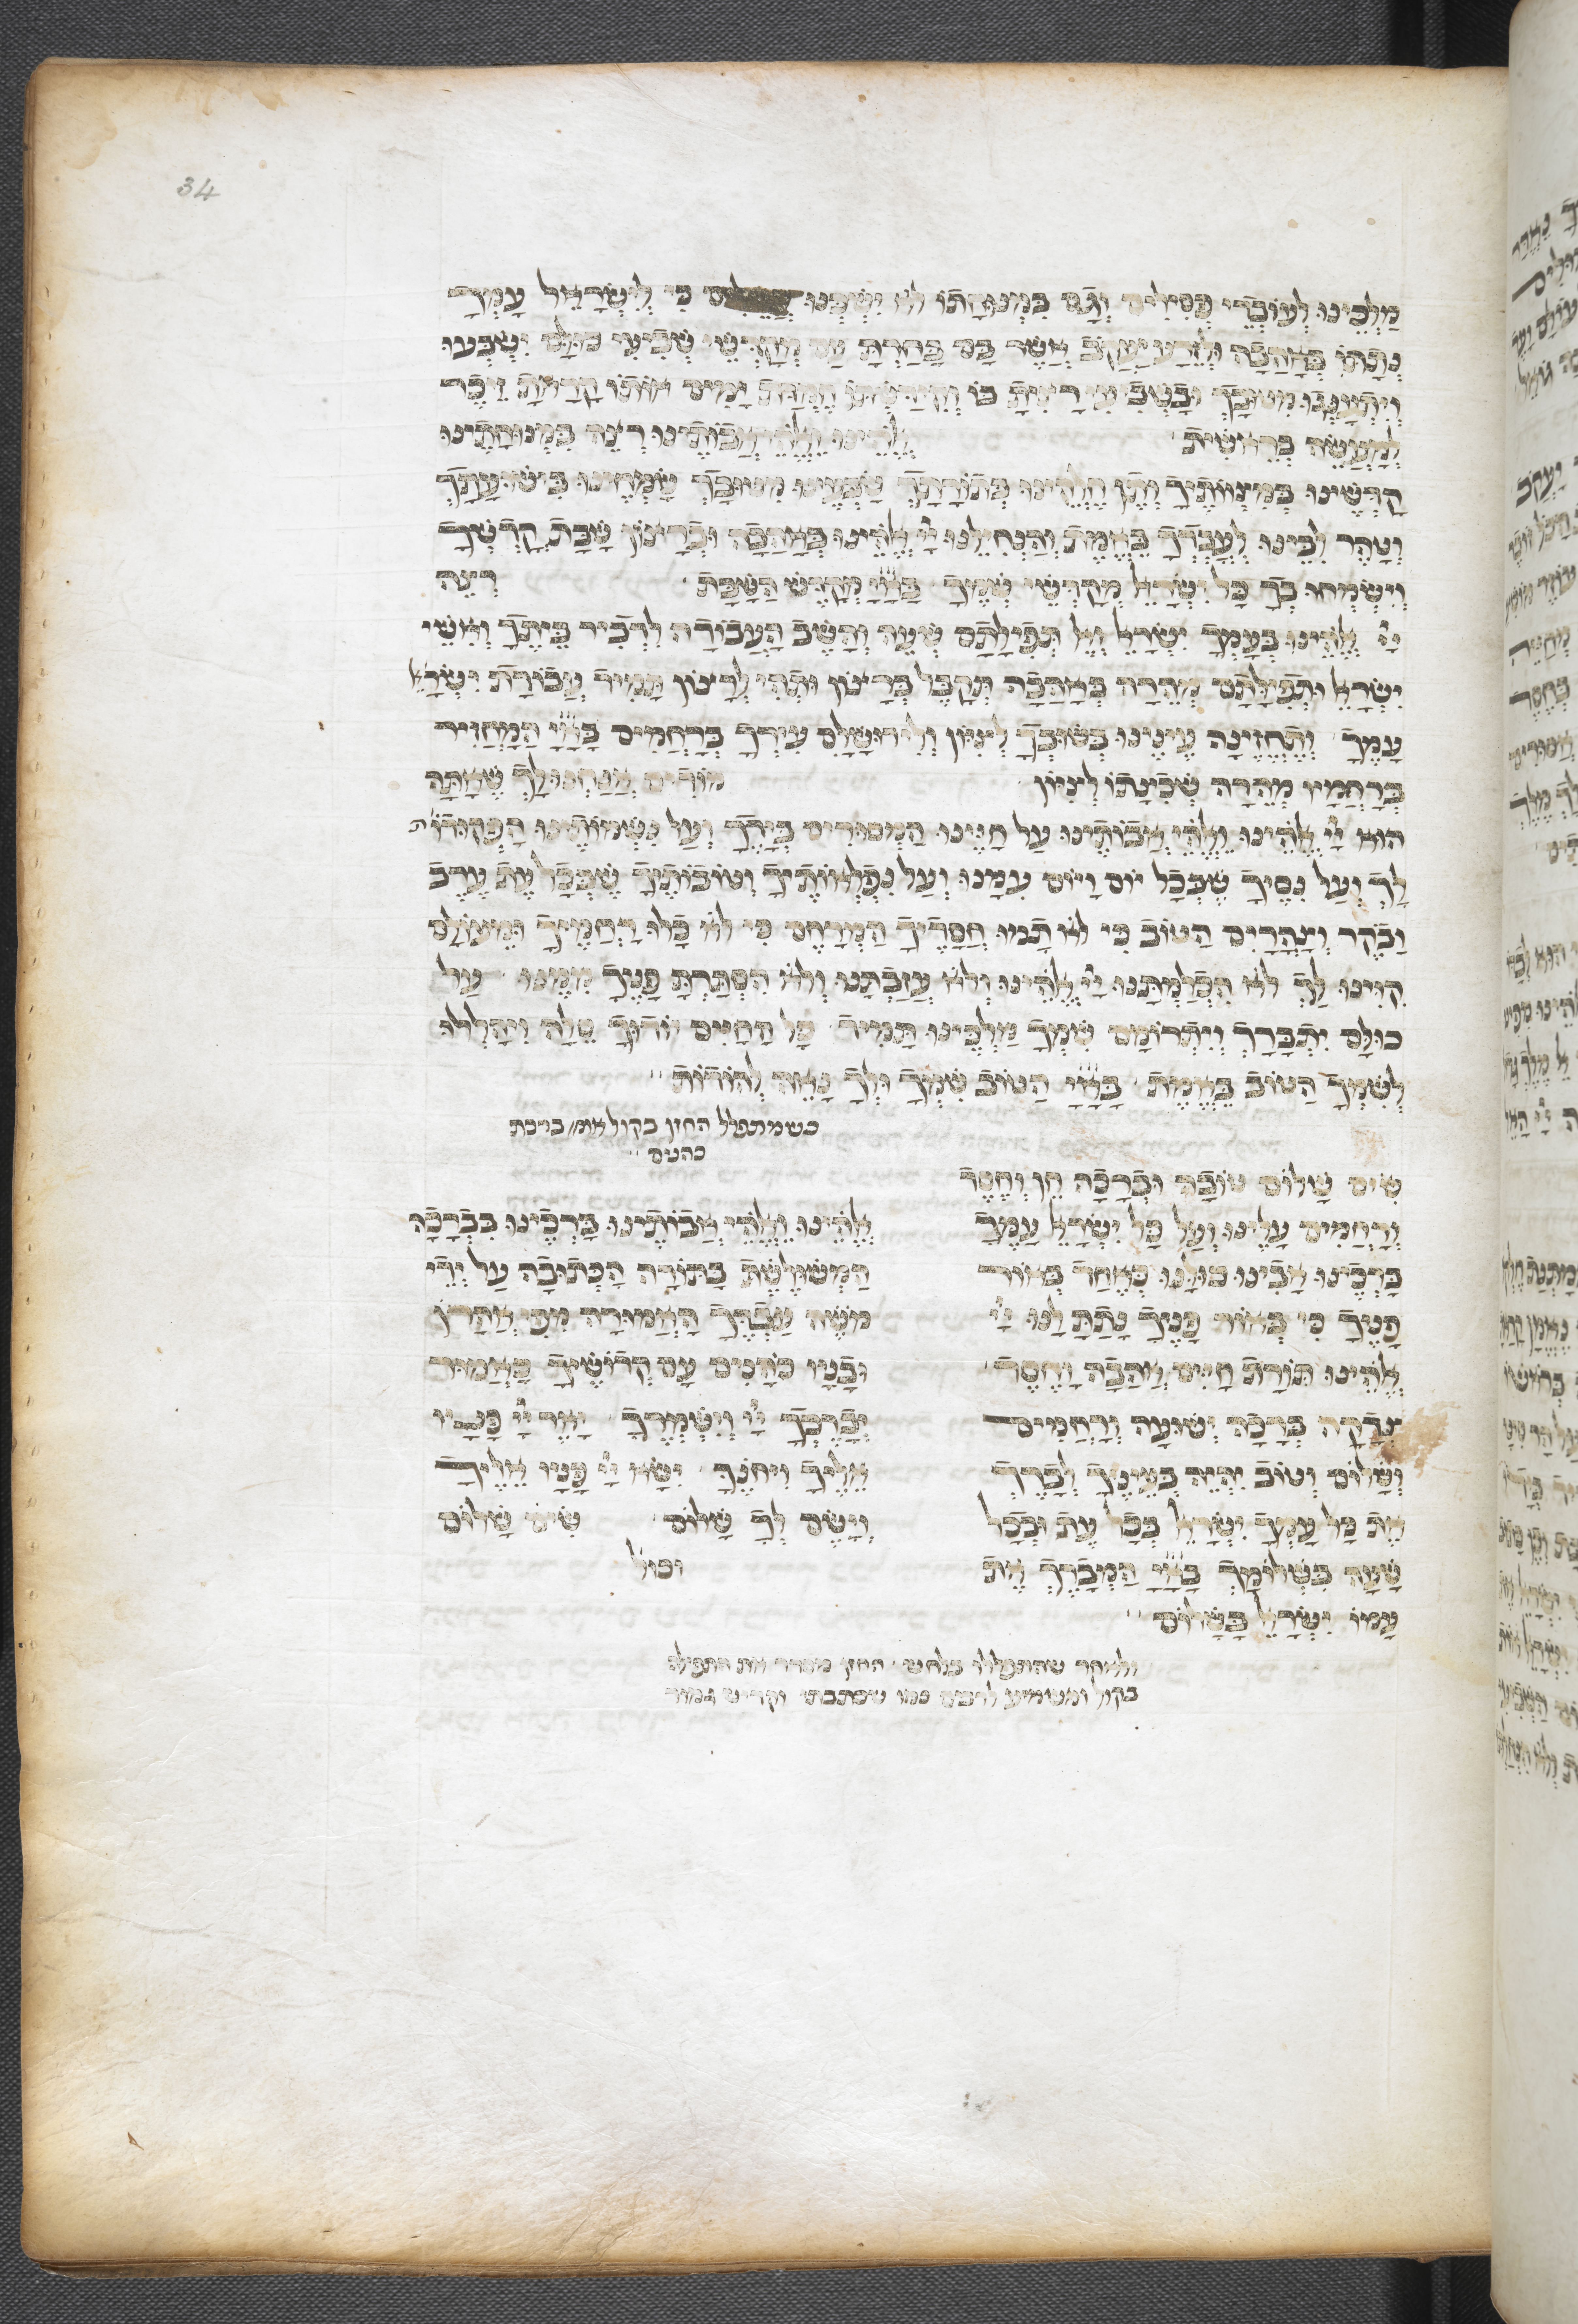 מלכינו לעובדי פסילים וגם במנוחתו לא ישכנו כי לישראל עמך
נתתו באהבה ולזרע יעקב אשר בם בחרת עם מקדשי שביעי כולם ישבעו
ויתענגו מטובך ובשביעי רציתה בו וקידשתו חמדת ימים אותו קראתה זכר
למעשה בראשית אלהינו ואלהי אבותינו רצה במנוחתינו
קדשינו במצותיך ותן חלקינו בתורתך שבעינו מטובך שמחינו בישועתך
וטהר לבינו לעבדך באמת והנחילנו יי אלהינו באהבה וברצון שבת קדשך
וישמחו בך כל ישראל מקדשי שמך באיי מקדש השבת רצה
יי אלהינו בעמך ישראל ואל תפילתם שעה והשב העבודה לדביר ביתך ואשי
ישראל ותפילתם מהרה באהבה תקבל ברצון ותהי לרצון תמיד עבודת ישרא
עמך ותחזינה עינינו בשובך לציון ולירושלם עירך ברחמים באיי המחזיר
ברחמיו מהרה שכינתו לציון מודים אנחנו לך שאתה
הוא יי אלהינו ואלהי אבותינו על חיינו המסורים בידך ועל נשמותינו הפקודות
לך ועל נסיך שבכל יום ויום עמנו ועל נפלאותיך וטובותיך שבכל עת ערב
ובקר וצהרים הטוב כי לא תמו חסדיך המרחם כי לא כלו רחמיך ומעולם
קוינו לך לא הכלמתנו יי אלהינו ולא עזבתנו ולא הסתרת פניך ממנו על
כולם יתברך ויתרומם שמך מלכינו תמיד כל החיים יודוך סלה ויהללו
לשמך הטוב באמת באיי הטוב שמך ולך נאה להודות
כשמתפלל החזן בקול או׳ ברכת
כהנים
שים שלום טובה וברכה חן וחסד
ורחמים עלינו ועל כל ישראל עמך
ברכינו אבינו כולנו כאחד באור
פניך כי באור פניך נתת לנו יי
אלהינו תורת חיים אהבה וחסד
צדקה ברכה ישועה ורחמים
ושלום וטוב יהיה בעיניך לברך
את כל עמך ישראל בכל עת ובכל
שעה בשלומך באיי המברך את
עמו ישראל בשלום
אלהינו ואלהי אבותינו ברכינו בברכה
המשולשת בתורה הכתובה על ידי
משה עבדך האמורה מפי אהרן
ובניו כהנים עם קדושיך כאמור
יברכך יי וישמרך יאר יי פניו
אליך ויחנך ישא יי פניו אליך
וישם לך שלום שים שלום
וכול
ולאחר שהתפללו בלחש החזן מסדר את התפילה
בקול ומשמיע לרבים כמו שכתבתי וקדיש גמור
34